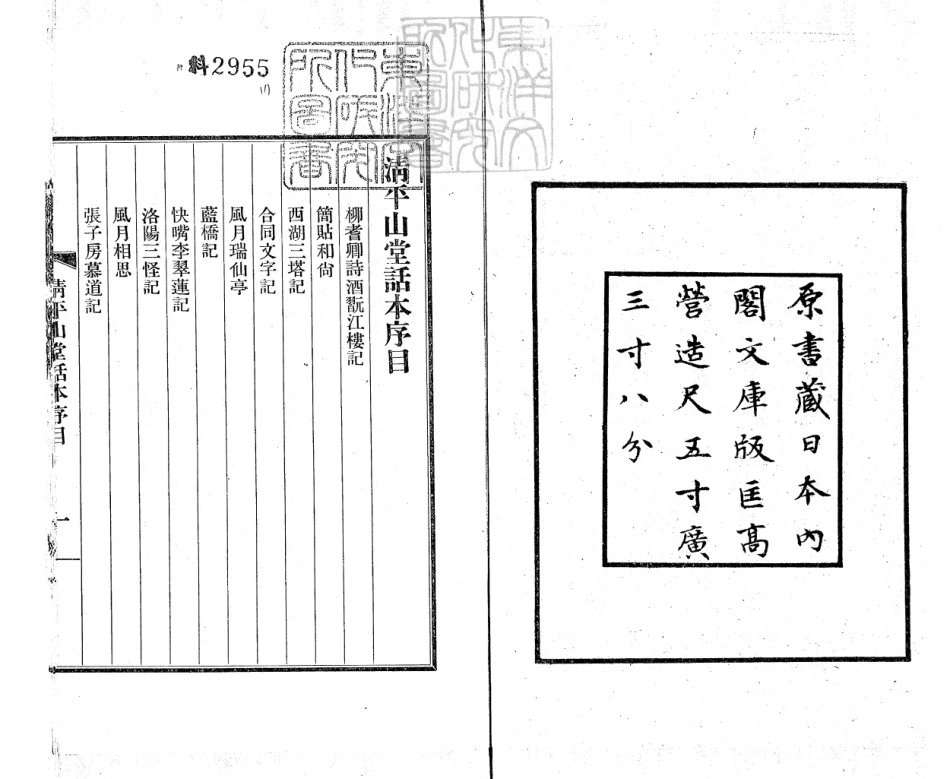 原書藏日本內
閣文庫版匡高
營造尺五寸廣
三寸八分
料2955
東洋文
化研究
所圖書
清平山堂話本序目
柳耆卿詩酒翫江樓記
簡貼和尙
西湖三塔記
合同文字記
風月瑞仙亭
藍橋記
快嘴李翠蓮記
洛陽三怪記
風月相思
張子房慕道記
清平山堂話本序目
一